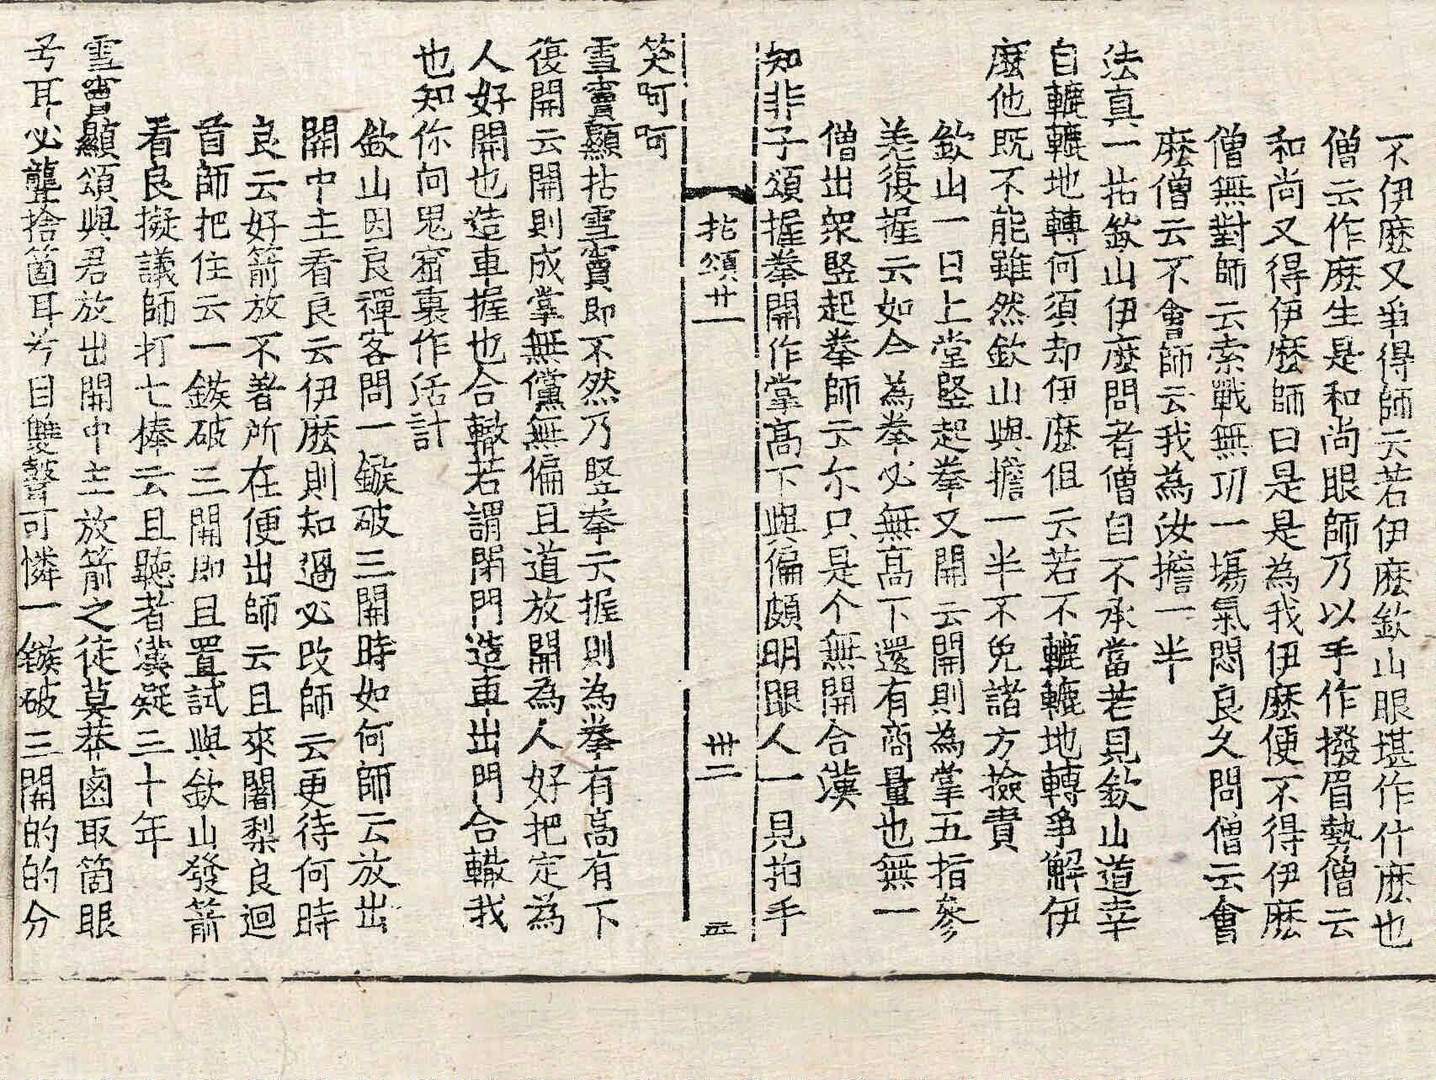 不伊麽又爭得師云若伊麽欽山眼堪作什麽也
僧云作麽生是和尚眼師乃以手作撥眉勢僧云
和尚又得伊麽師曰是是為我伊麽便不得伊麽
僧無對師云索戰無功一塲氣悶良久問僧云會
麽僧云不會師云我為汝擔一半
法真一拈欽山伊麽問者僧自不承當若見欽山道幸
自轆轆地轉何須却伊麽但云若不轆轆地轉爭解伊
麽他既不能雖然欽山與擔一半不免諸方撿責
欽山一日上堂竪起拳又開云開則為掌五指參
差復握云如今為拳必無高下還有商量也無一
僧出衆竪起拳師云尒只是个無開合漢
知非子頌握拳開作掌高下與偏頗明眼人一見拍手
拈頌廿一
卅二
笑呵呵
雪竇顯拈雪竇即不然乃竪拳云握則為拳有高有下
復開云開則成掌無黨無偏且道放開為人好把定為
人好開也造車握也合轍若謂閉門造車出門合轍我
也知你向鬼窟裏作活計
欽山因良禪客問一鏃破三關時如何師云放出
關中主看良云伊麽則知過必改師云更待何時
良云好箭放不著所在便出師云且來闍梨良迴
首師把住云一鏃破三關即且置試與欽山發箭
看良擬議師打七棒云且聽者漢疑三十年
雪竇顯頌與君放出關中主放箭之徒莫莽鹵取箇眼
兮耳必聾捨箇耳兮目雙瞽可憐一鏃破三關的的分